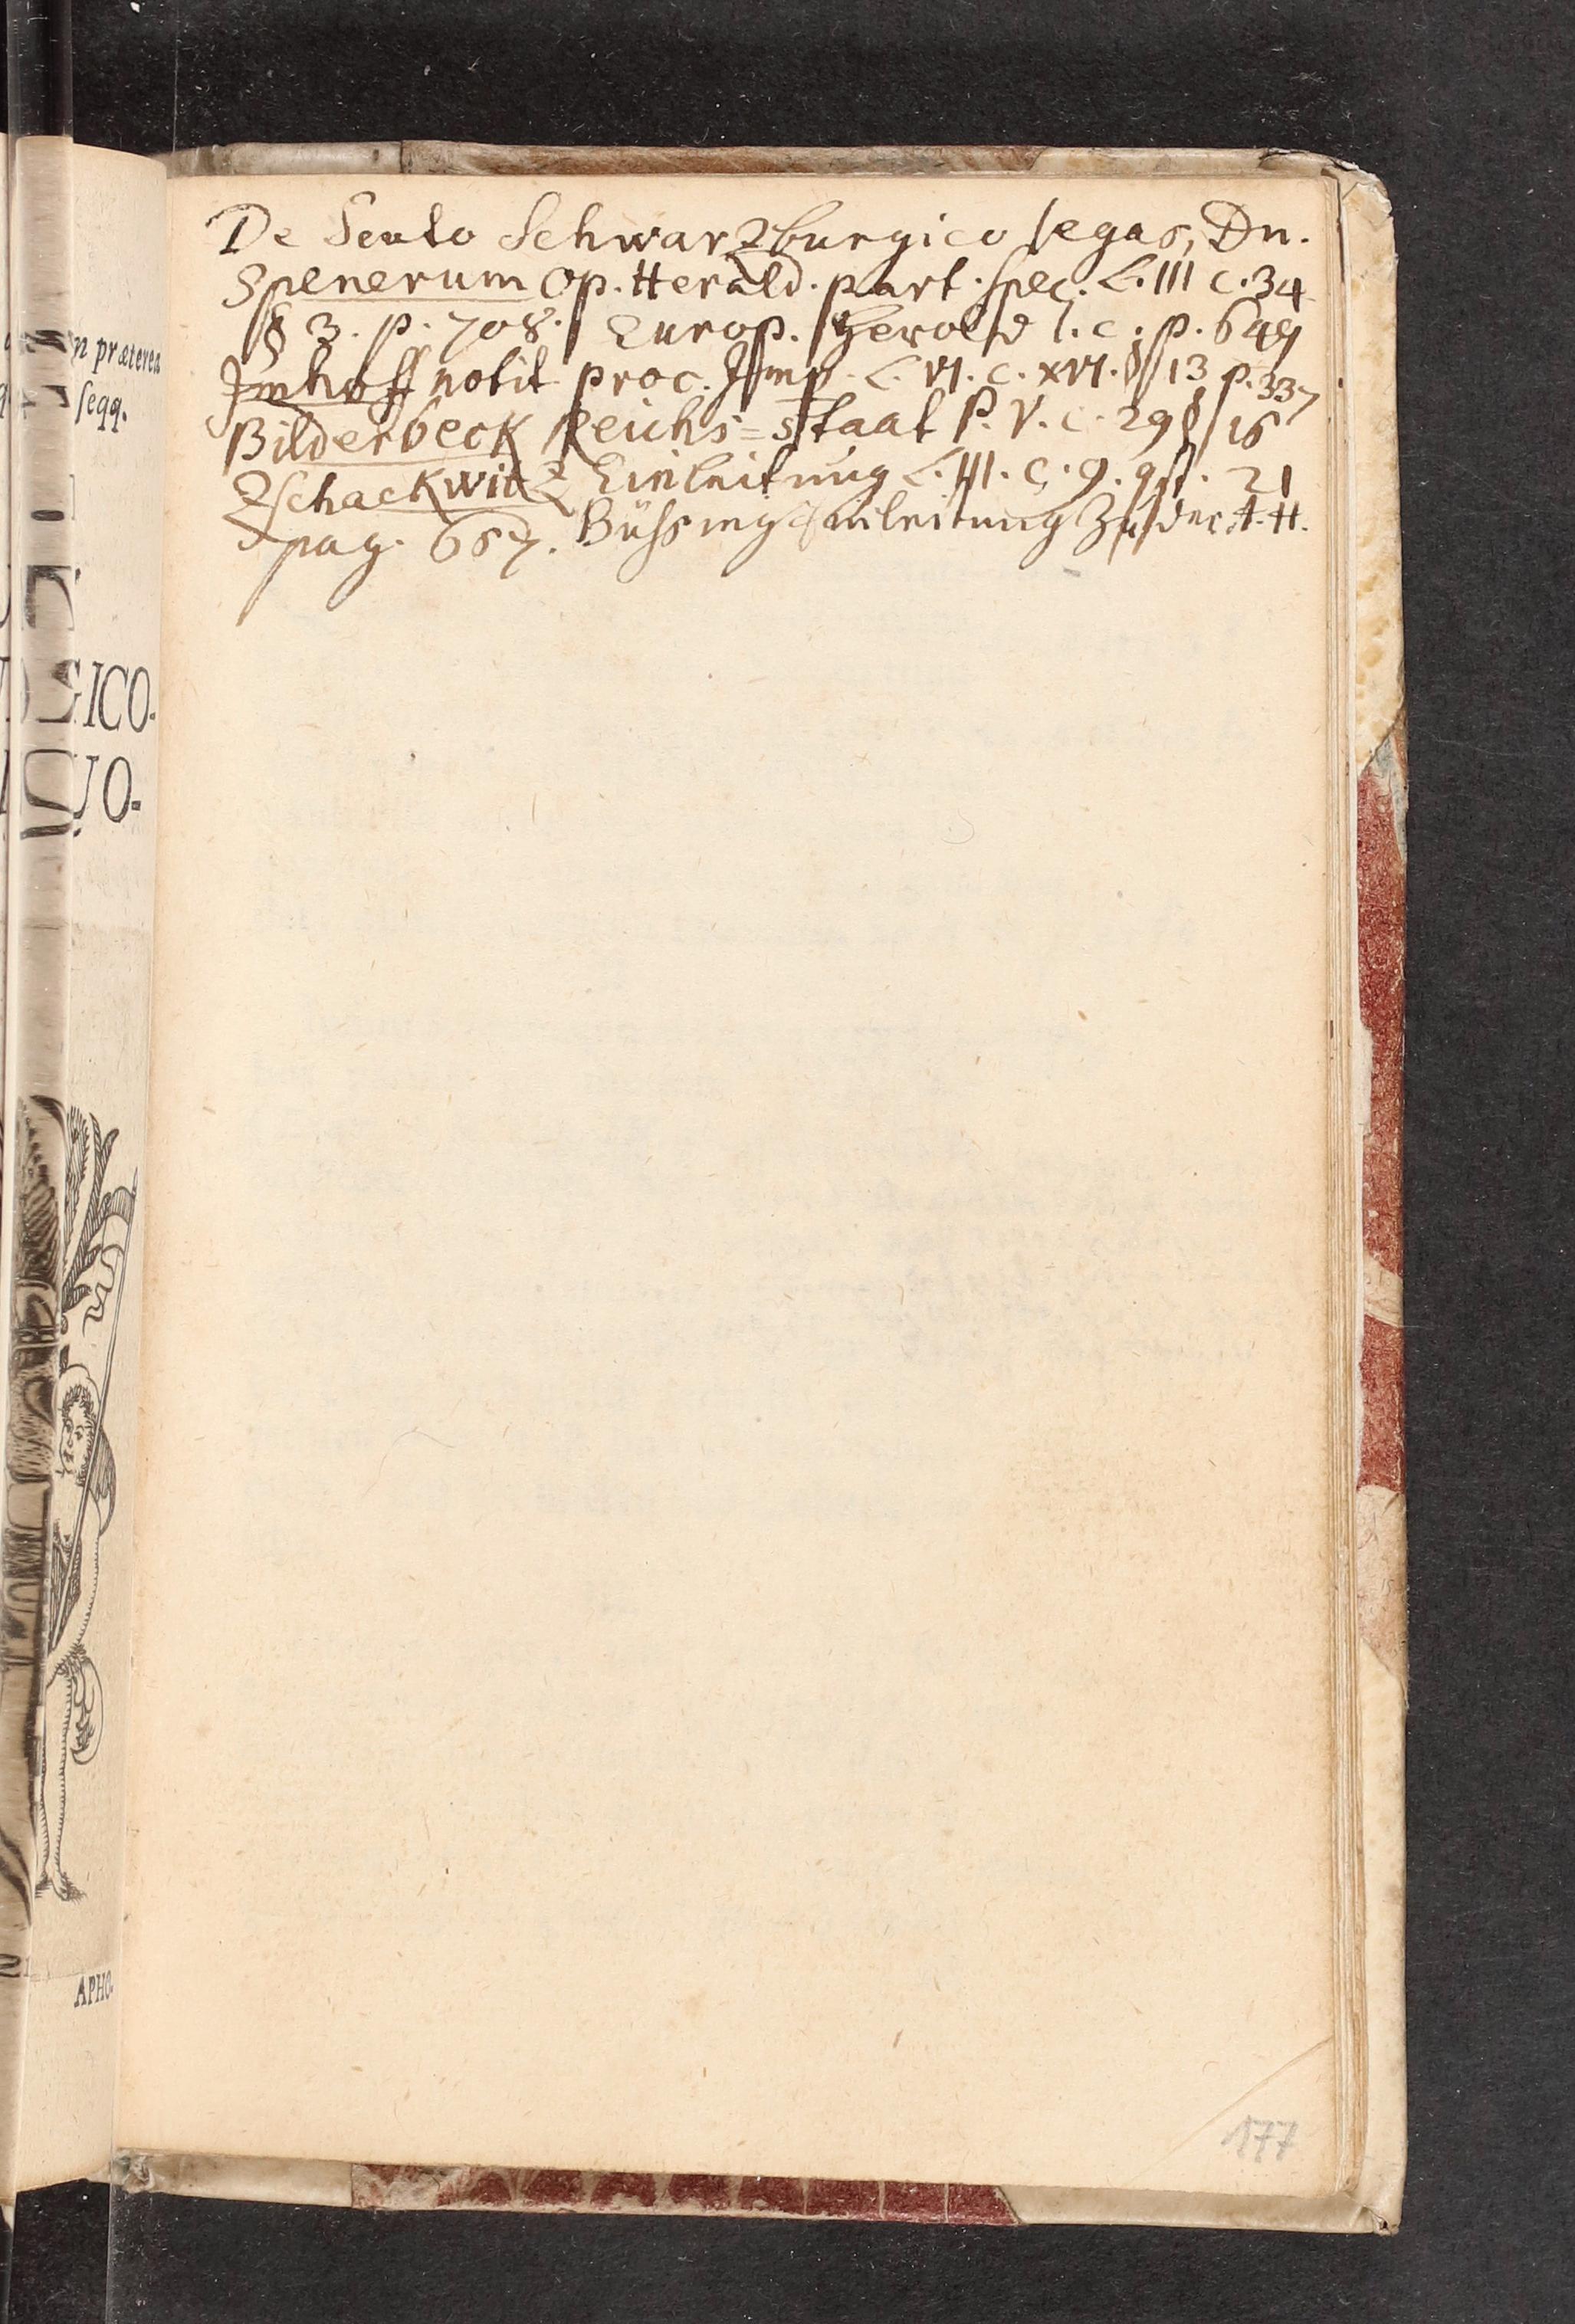 De Scuto Schwarzburgico legas, Dn.
Spenerum Op. Herald. part. spec. L. III c. 34
§ 3. p. 708. Europ. Herold l. c. p. 649
Imhoff notit proc. Imp. L. VI. C. XVI. § 13 p. 337
Bilderbeck Reichs=Staat P. V. c. 29 § 16
Zschackwitz Einleitung L. III. C. 9. qst. 21
pag. 657. Büssing Einleitung Zu der A. H.
n præterea
seqq.
GICO.
UO.
APHO
177